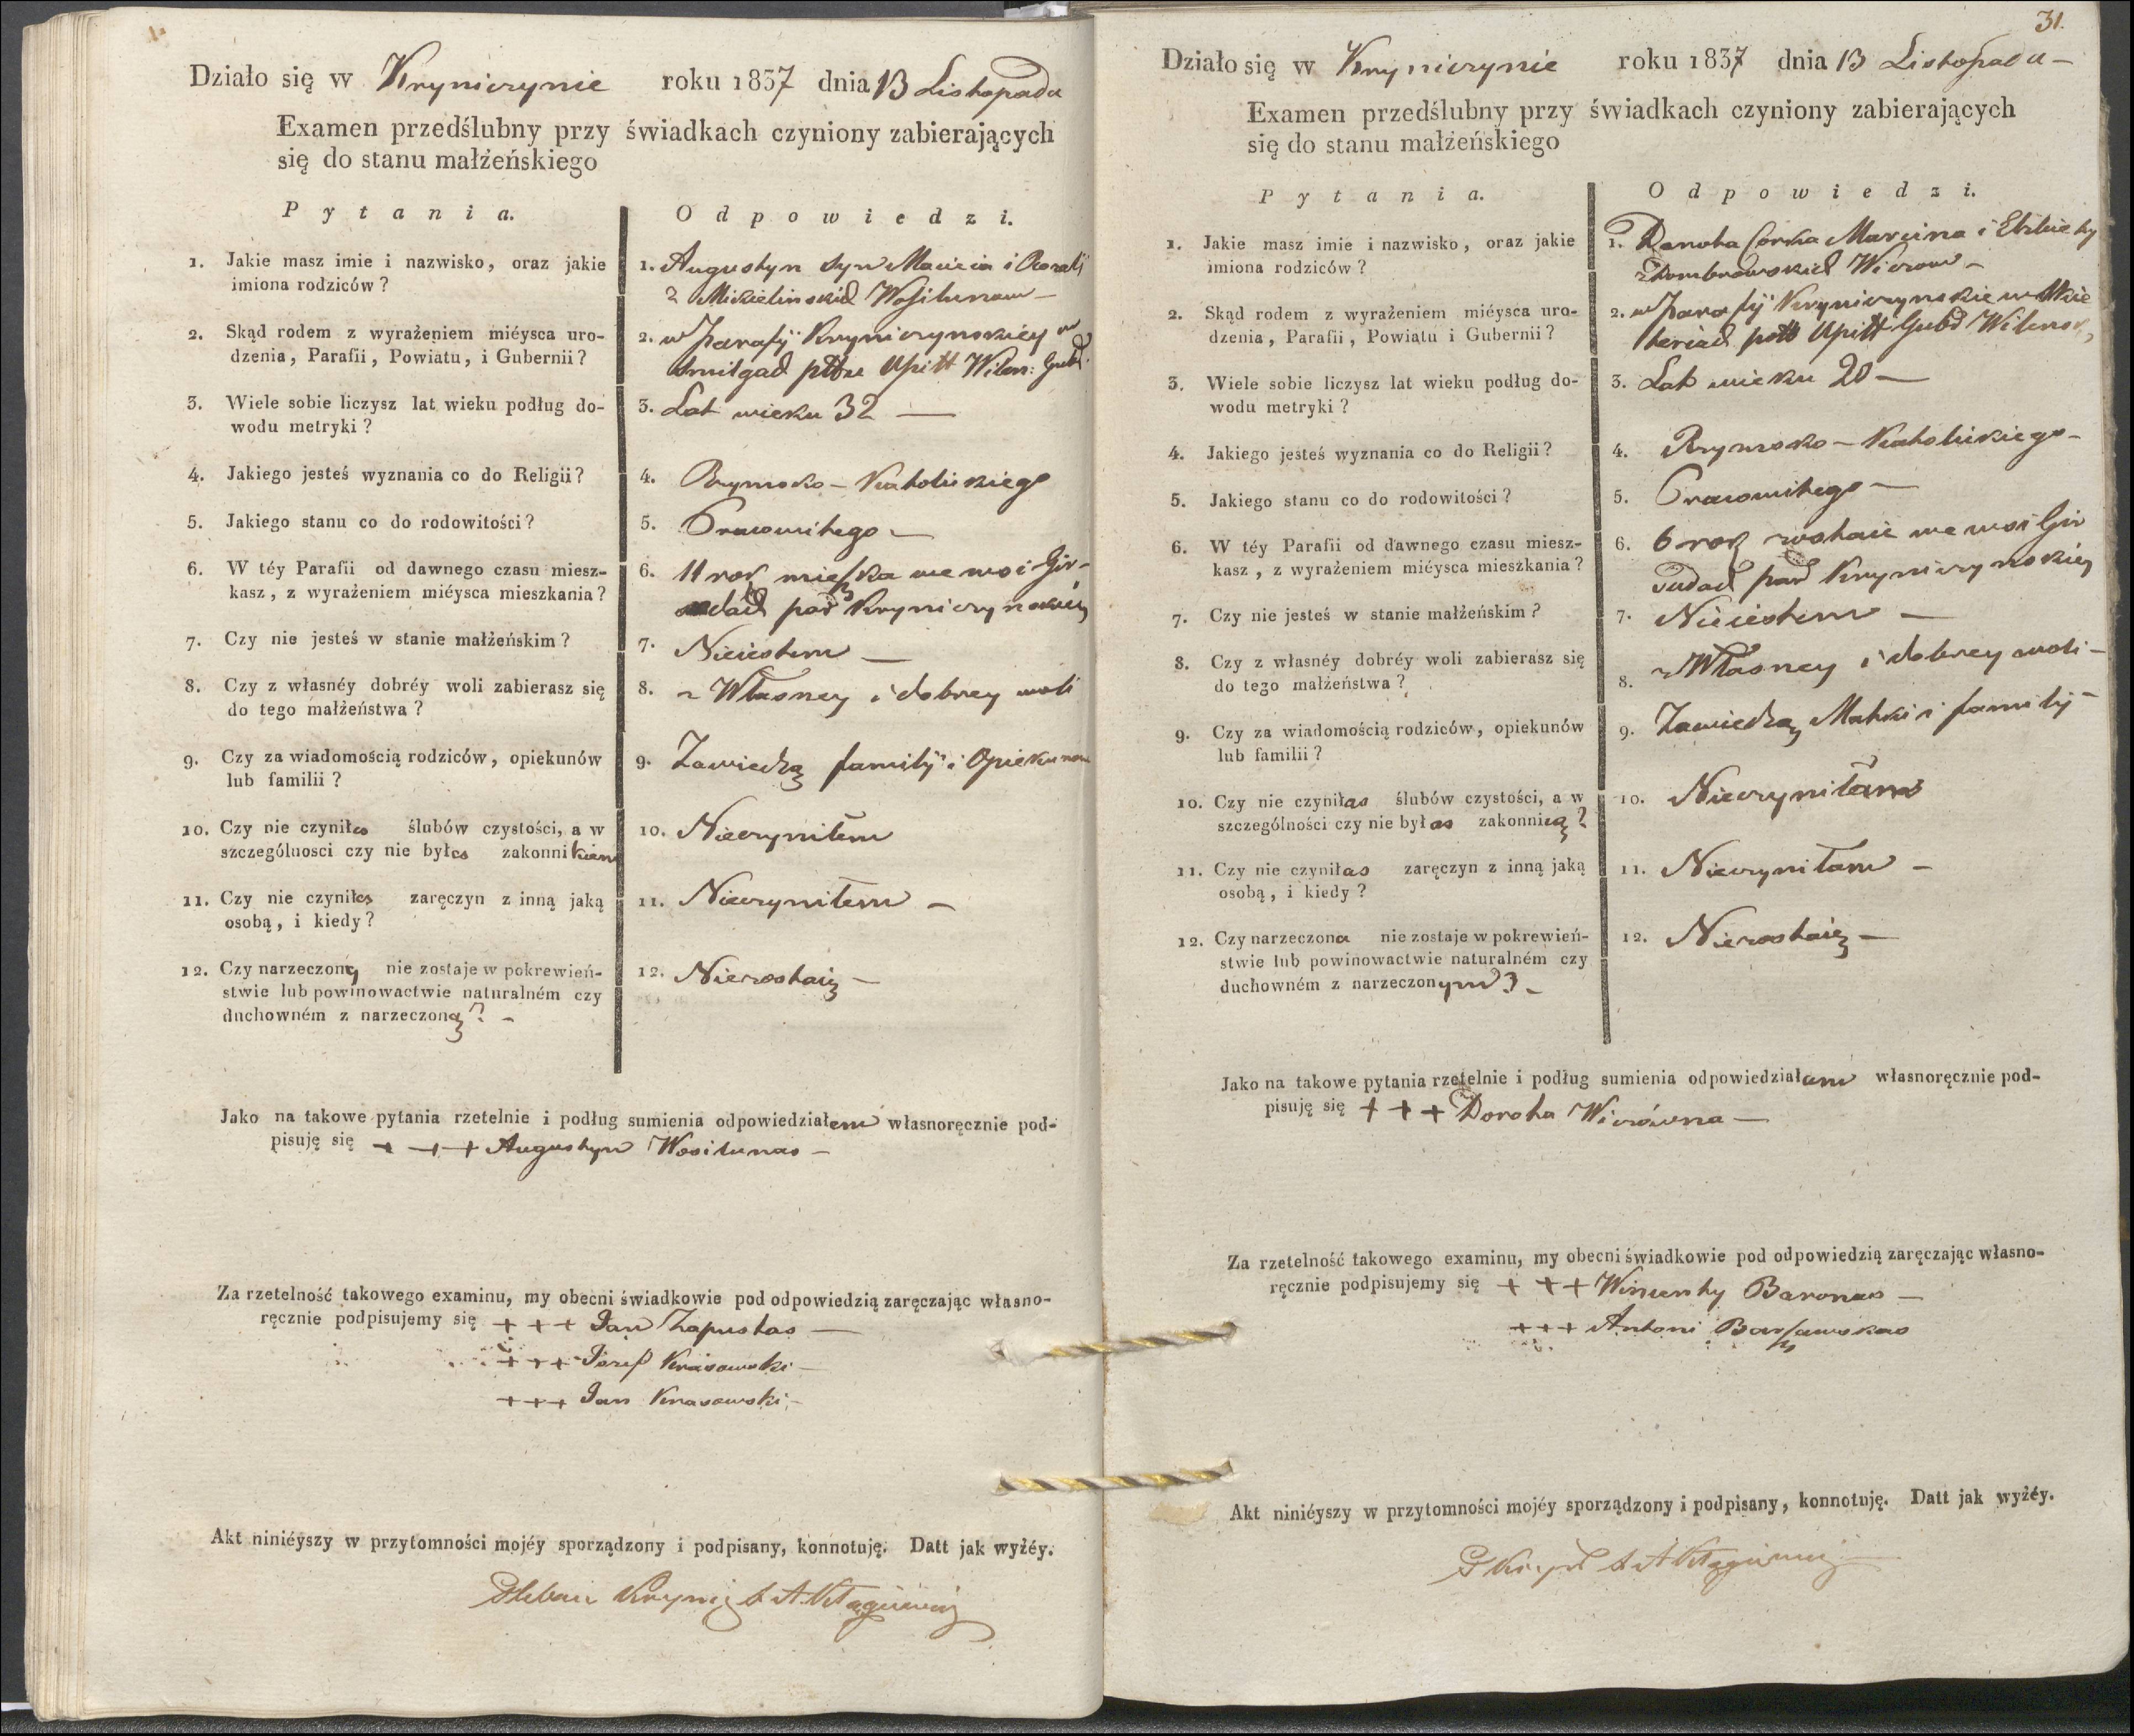 Działo się w Kryniczynie roku 1837 dnia 13 Listopada
Examen przedślubny przy świadkach czyniony zabierających
się do stanu małżeńskiego
Pytania.
Odpowiedzi.
1. Jakie masz imie i nazwisko, oraz jakie
imiona rodziców?
1. Augustyn Syn Macieia i Rozalij
z Mickielinskich Wasilunow —
2. Skąd rodem z wyrażeniem miéysca uro-
dzenia, Parafii, Powiatu, i Gubernii?
2. w Parafij Kryniczynskiey w
pttce Upitt Wilen: Gubd.
3. Wiele sobie liczysz lat wieku podług do-
wodu metryki?
3. Lat wieku 32 —
4. Jakiego jesteś wyznania co do Religii?
4. Rzymsko-Katolickiego
5. Jakiego stanu co do rodowitości?
5. Pracowitego —
6. W téy Parafii od dawnego czasu miesz-
kasz, z wyrażeniem miéysca mieszkania?
6. 11 rok mieszka we wsi Gir-
dach par Kryniczynskiey
7. Czy nie jesteś w stanie małżeńskim?
7. Nieiestem —
8. Czy z własnéy dobréy woli zabierasz się
do tego małżeństwa?
8. z Własney i dobrey woli
9. Czy za wiadomością rodziców, opiekunów
lub familii?
9. Zawiedzą familij i Opiekunow
10. Czy nie czyniłes ślubów czystości, a w
szczególnosci czy nie byłes zakonnikiem
10. Nieczyniłem
11. Czy nie czyniłes zaręczyn z inną jaką
osobą, i kiedy?
11. Nieczyniłem —
12. Czy narzeczony nie zostaje w pokrewień-
stwie lub powinowactwie naturalném czy
duchowném z narzeczoną? —
12. Niezostaię —
Jako na takowe pytania rzetelnie i podług sumienia odpowiedziałem własnoręcznie pod-
pisuję się + + + Augustyn Wasilunas —
Za rzetelność takowego examinu, my obecni świadkowie pod odpowiedzią zaręczając własno-
ręcznie podpisujemy się + + + Jan Zapustas —
+ + + Józef Krasowski —
+ + + Jan Krasowski —
Akt niniéyszy w przytomności mojéy sporządzony i podpisany, konnotuję. Datt jak wyżéy.
Pleban
31.
Działo się w Kryniczynie roku 1837 dnia 13 Listopada —
Examen przedślubny przy świadkach czyniony zabierających
się do stanu małżeńskiego
Pytania.
Odpowiedzi.
1. Jakie masz imie i nazwisko, oraz jakie
imiona rodziców?
1. Dorota Corka Marcina i Elzbiety
z Dombrowskich Wicow —
2. Skąd rodem z wyrażeniem miéysca uro-
dzenia, Parafii, Powiatu i Gubernii?
2. w Parafij Kryniczynskie
pott Upitt Gubd Wilensk,
3. Wiele sobie liczysz lat wieku podług do-
wodu metryki?
3. Lat wieku 20 —
4. Jakiego jesteś wyznania co do Religii?
4. Rzymsko-Katolickiego —
5. Jakiego stanu co do rodowitości?
5. Pracowitego —
6. W téy Parafii od dawnego czasu miesz-
kasz, z wyrażeniem miéysca mieszkania?
6. 6 rok zostaie we wsi Gir
dach par Krynicyynskiey
7. Czy nie jesteś w stanie małżeńskim?
7. Nieiestem —
8. Czy z własnéy dobréy woli zabierasz się
do tego małżeństwa?
8. z Własney i dobrey woli —
9. Czy za wiadomością rodziców, opiekunów
lub familii?
9. Zawiedzą Matki i familij —
10. Czy nie czyniłas ślubów czystości, a w
szczególności czy nie byłas zakonnicą?
10. Nieczyniłam
11. Czy nie czyniłas zaręczyn z inną jaką
osobą, i kiedy?
11. Nieczyniłam —
12. Czy narzeczona nie zostaje w pokrewień-
stwie lub powinowactwie naturalném czy
duchowném z narzeczonym? —
12. Niezostaię —
Jako na takowe pytania rzetelnie i podług sumienia odpowiedziałam własnoręcznie pod-
pisuję się + + + Dorota Wicówna —
Za rzetelność takowego examinu, my obecni świadkowie pod odpowiedzią zaręczając własno-
ręcznie podpisujemy się + + + Wincenty Baronas —
+++ Antoni Barszawskas
Akt niniéyszy w przytomności mojéy sporządzony i podpisany, konnotuję. Datt jak wyżéy.